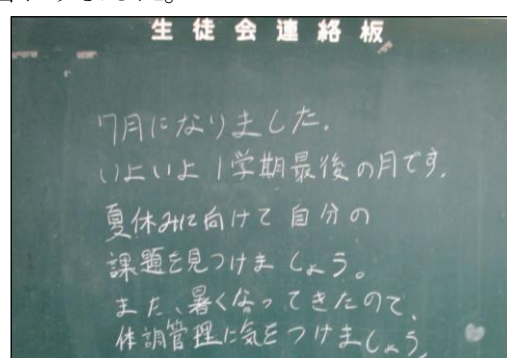 生徒会連絡板
7月になりました.
いよいよ1学期最後の月です.
夏休みに向けて自分の
課題を見つけましょう。
また、暑くなってきたので、
体調管理に気をつけましょう。